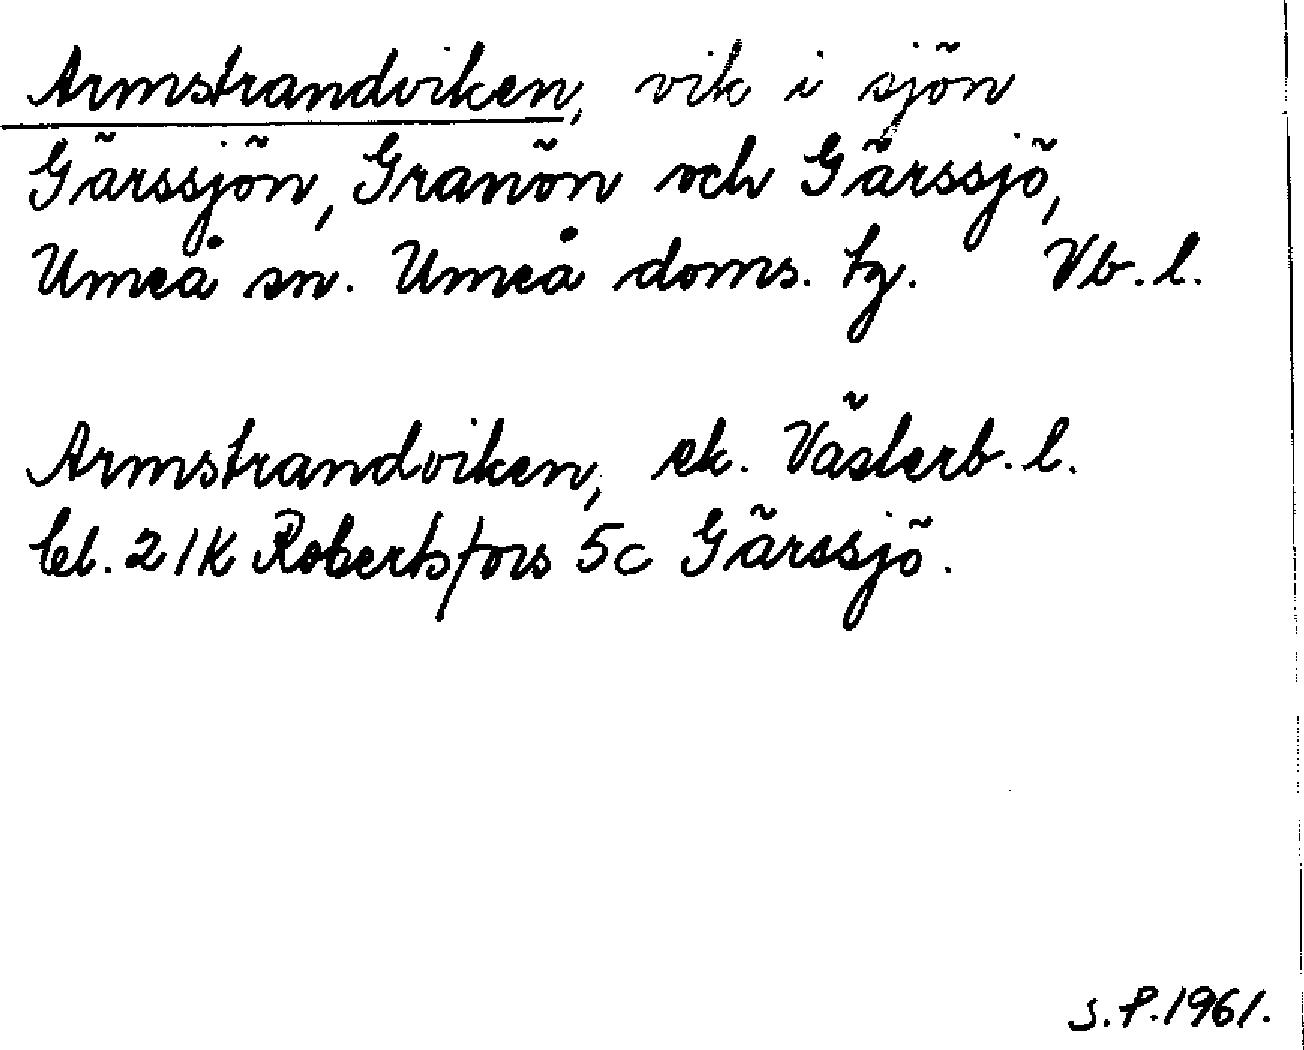 Armstrandviken, vik i sjön
Gärssjön, Granön och Gärssjö,
Umeå sn. Umeå doms. tg. Vb. l.
Armstrandviken, ek. Västerb. l.
bl. 21K Robertsfors 5c Gärssjö.
S. P. 1961.